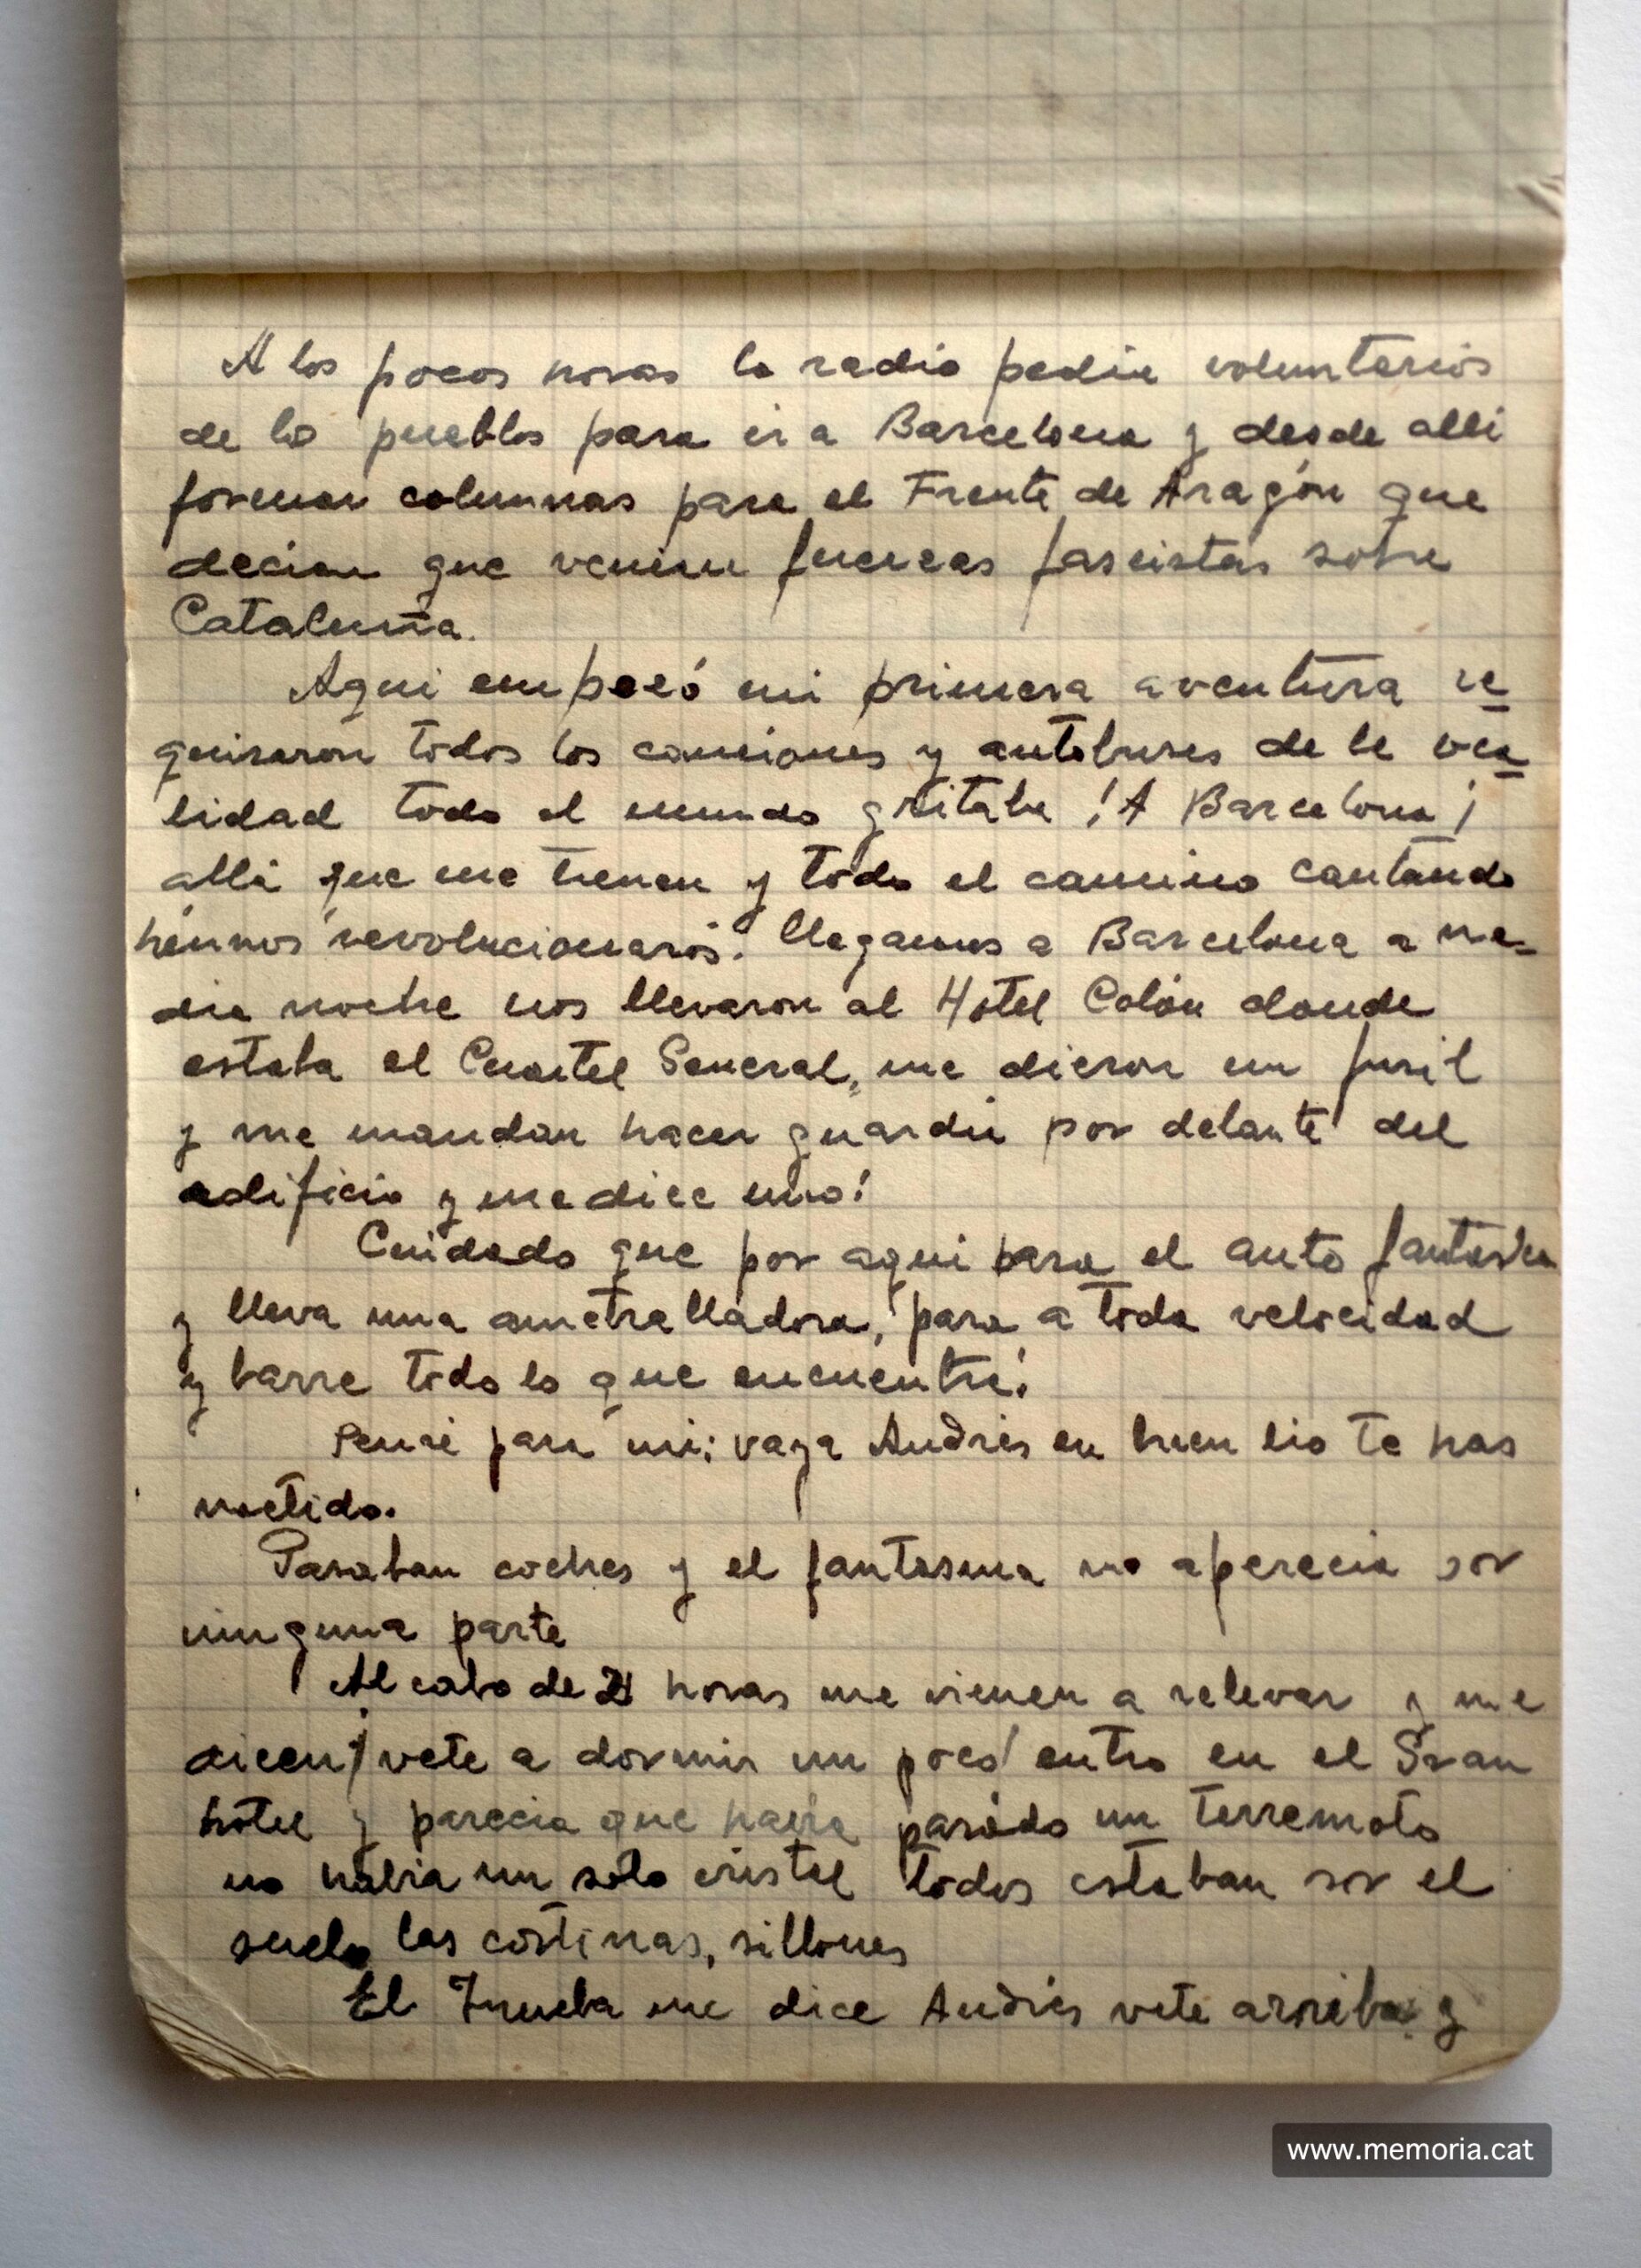 A los pocos horas la radio pedia voluntarios
de lo pueblos para ir a Barcelona y desde alli
formar columnas para el Frente de Aragón que
decian que venian fuerzas fascistas sobre
Cataluña.
Aqui empezó mi primera aventura re
quisaron todos los camiones y autobuses de la loca
lidad todo el mundo gritaba ¡A Barcelona!
alli que me tienen y todo el camino cantando
himnos revolucionaros. llegamos a Barcelona a me-
dia noche nos llevaron al Hotel Colón donde
estaba el Cuartel General, me dieron un fusil
y me mandan hacer guardia por delante del
edificio y me dice uno!
Cuidado que por aqui pasa el auto fantasma
y lleva una ametralladora, pasa a toda velocidad
y barre todo lo que encuentre!
Pensé para mi; vaya Andrés en buen lio te has
metido.
Pasaban coches y el fantasma no aparecia por
ninguna parte
Al cabo de horas me vienen a relevar y me
dicen ¡vete a dormir un poco! entro en el Gran
hotel y parecia que habia pasado un terremoto
no habia un solo cristal todos estaban por el
suelo las cortinas, sillones
El me dice Andrés vete arriba y
www.memoria.cat